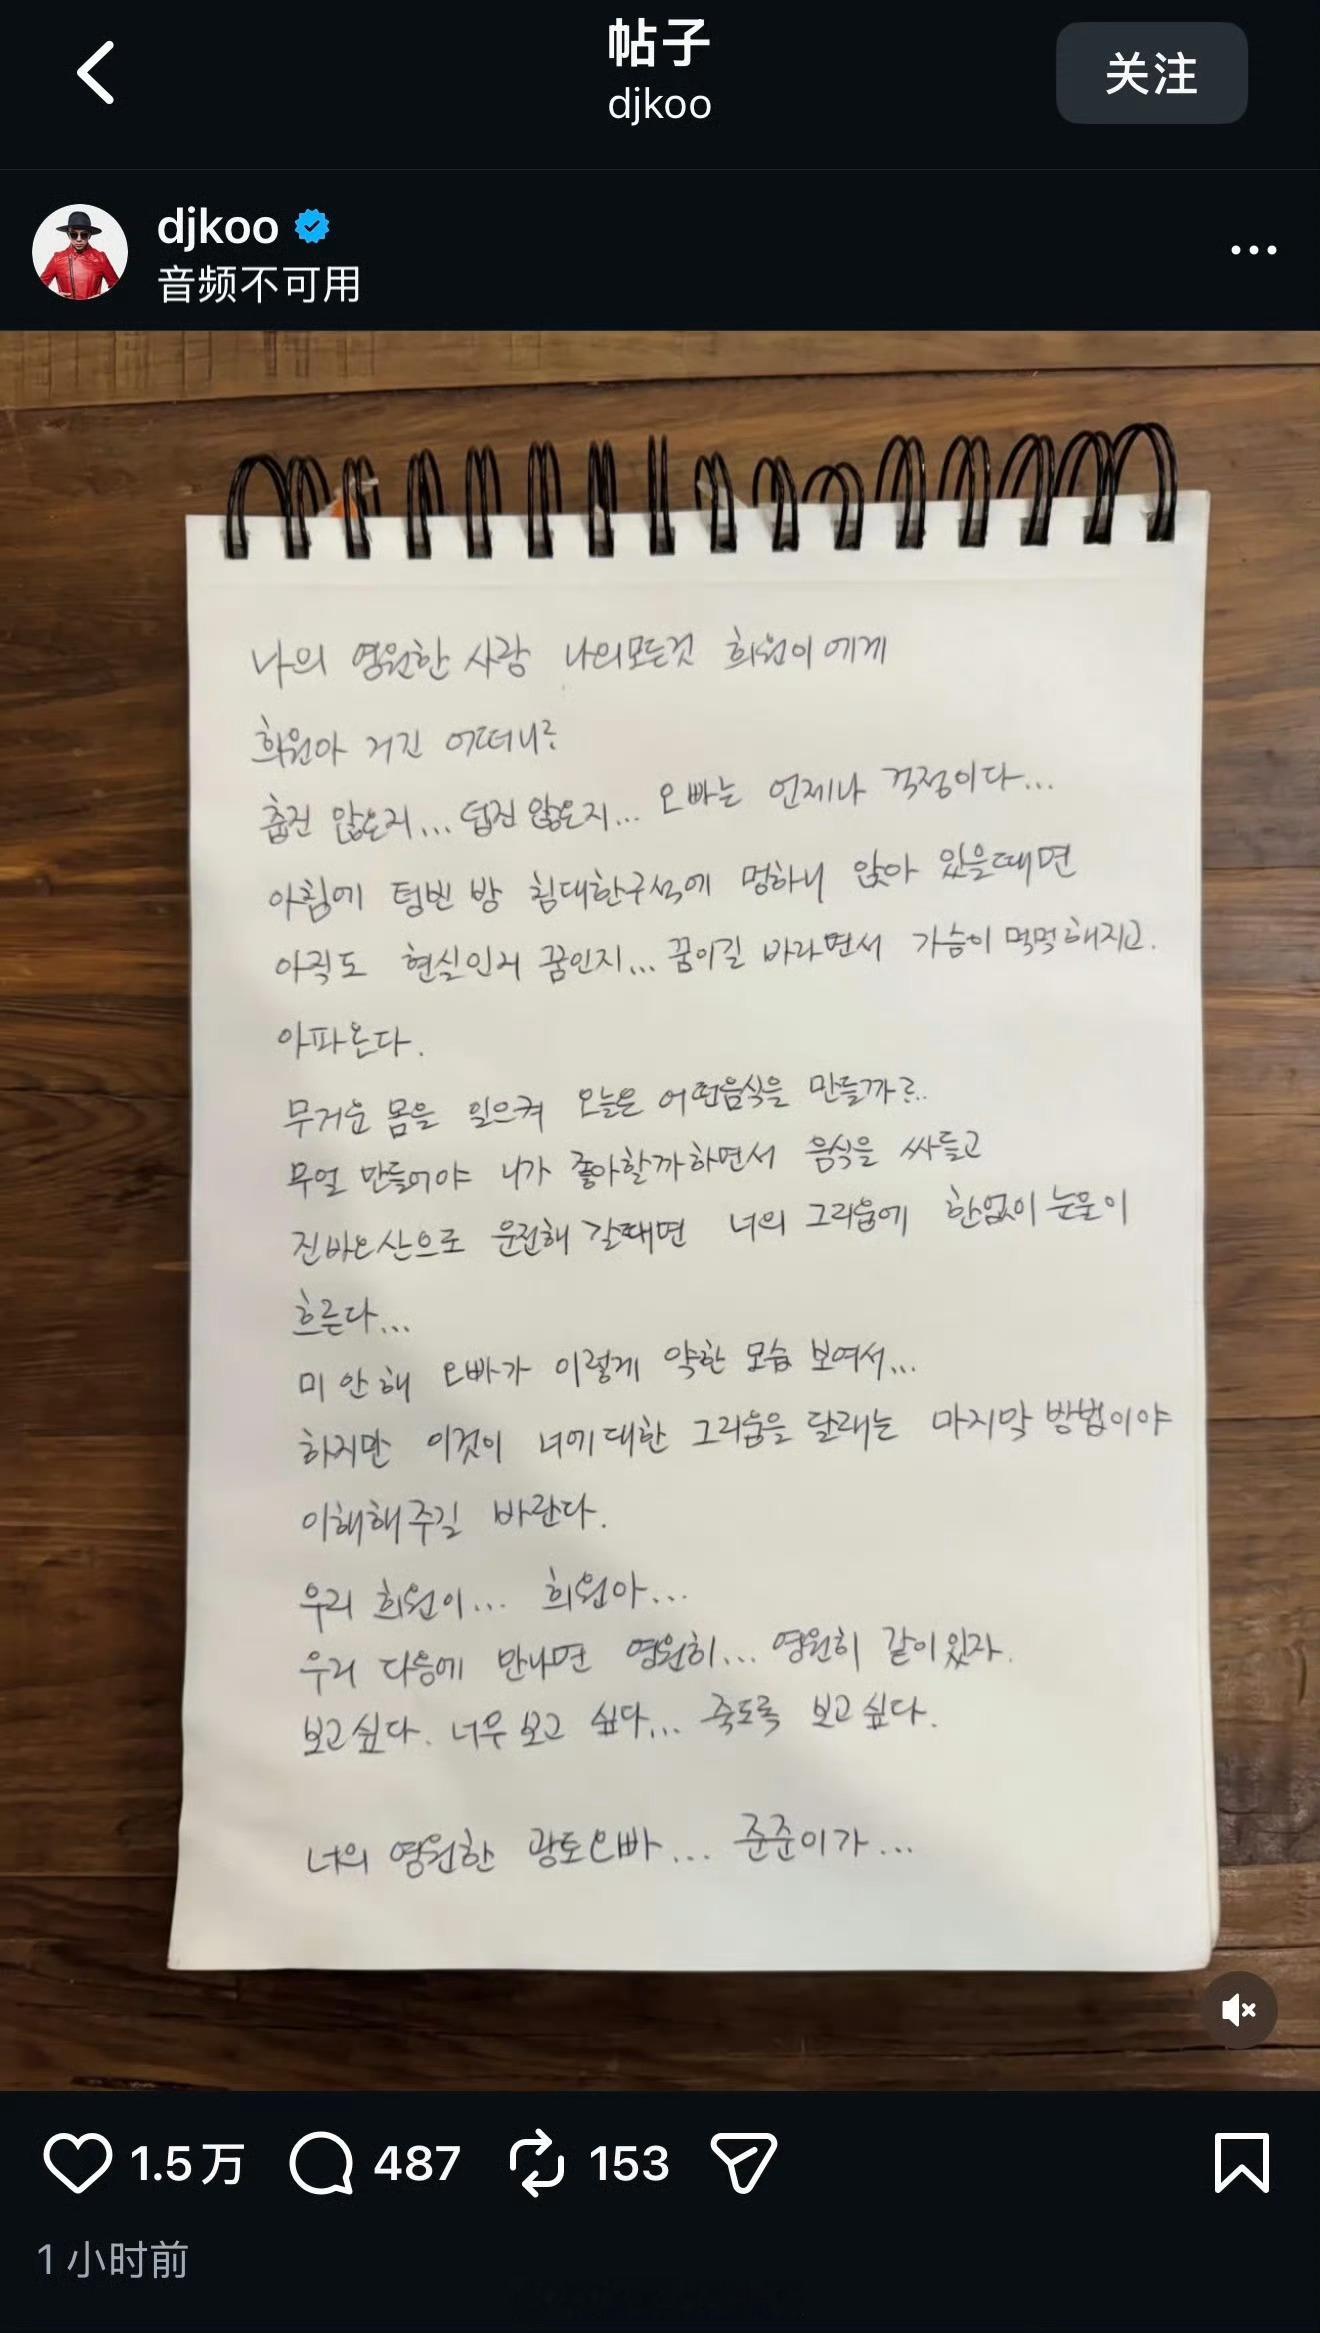 帖子
djkoo
关注
djkoo
音频不可用
나의 영원한 사랑 나의모든것 희원이에게
희원아 거긴 어떠니?
춥진 않은지... 덥진 않은지... 오빠는 언제나 걱정이다...
아침에 텅빈 방 침대한구석에 멍하니 앉아 있을때면
아직도 현실인지 꿈인지... 꿈이길 바라면서 가슴이 먹먹해지고.
아파온다.
무거운 몸을 일으켜 오늘은 어떤음식을 만들까?..
무얼 만들어야 니가 좋아할까하면서 음식을 싸들고
진바오산으로 운전해 갈때면 너의 그리움에 한없이 눈물이
흐른다...
미안해 오빠가 이렇게 약한 모습 보여서...
하지만 이것이 너에대한 그리움을 달래는 마지막 방법이야
이해해주길 바란다.
우리 희원이... 희원아...
우리 다음에 만나면 영원히... 영원히 같이있자.
보고싶다. 너무 보고 싶다... 죽도록 보고싶다.
너의 영원한 광토오빠... 준준이가...
1.5万 487 153
1 小时前